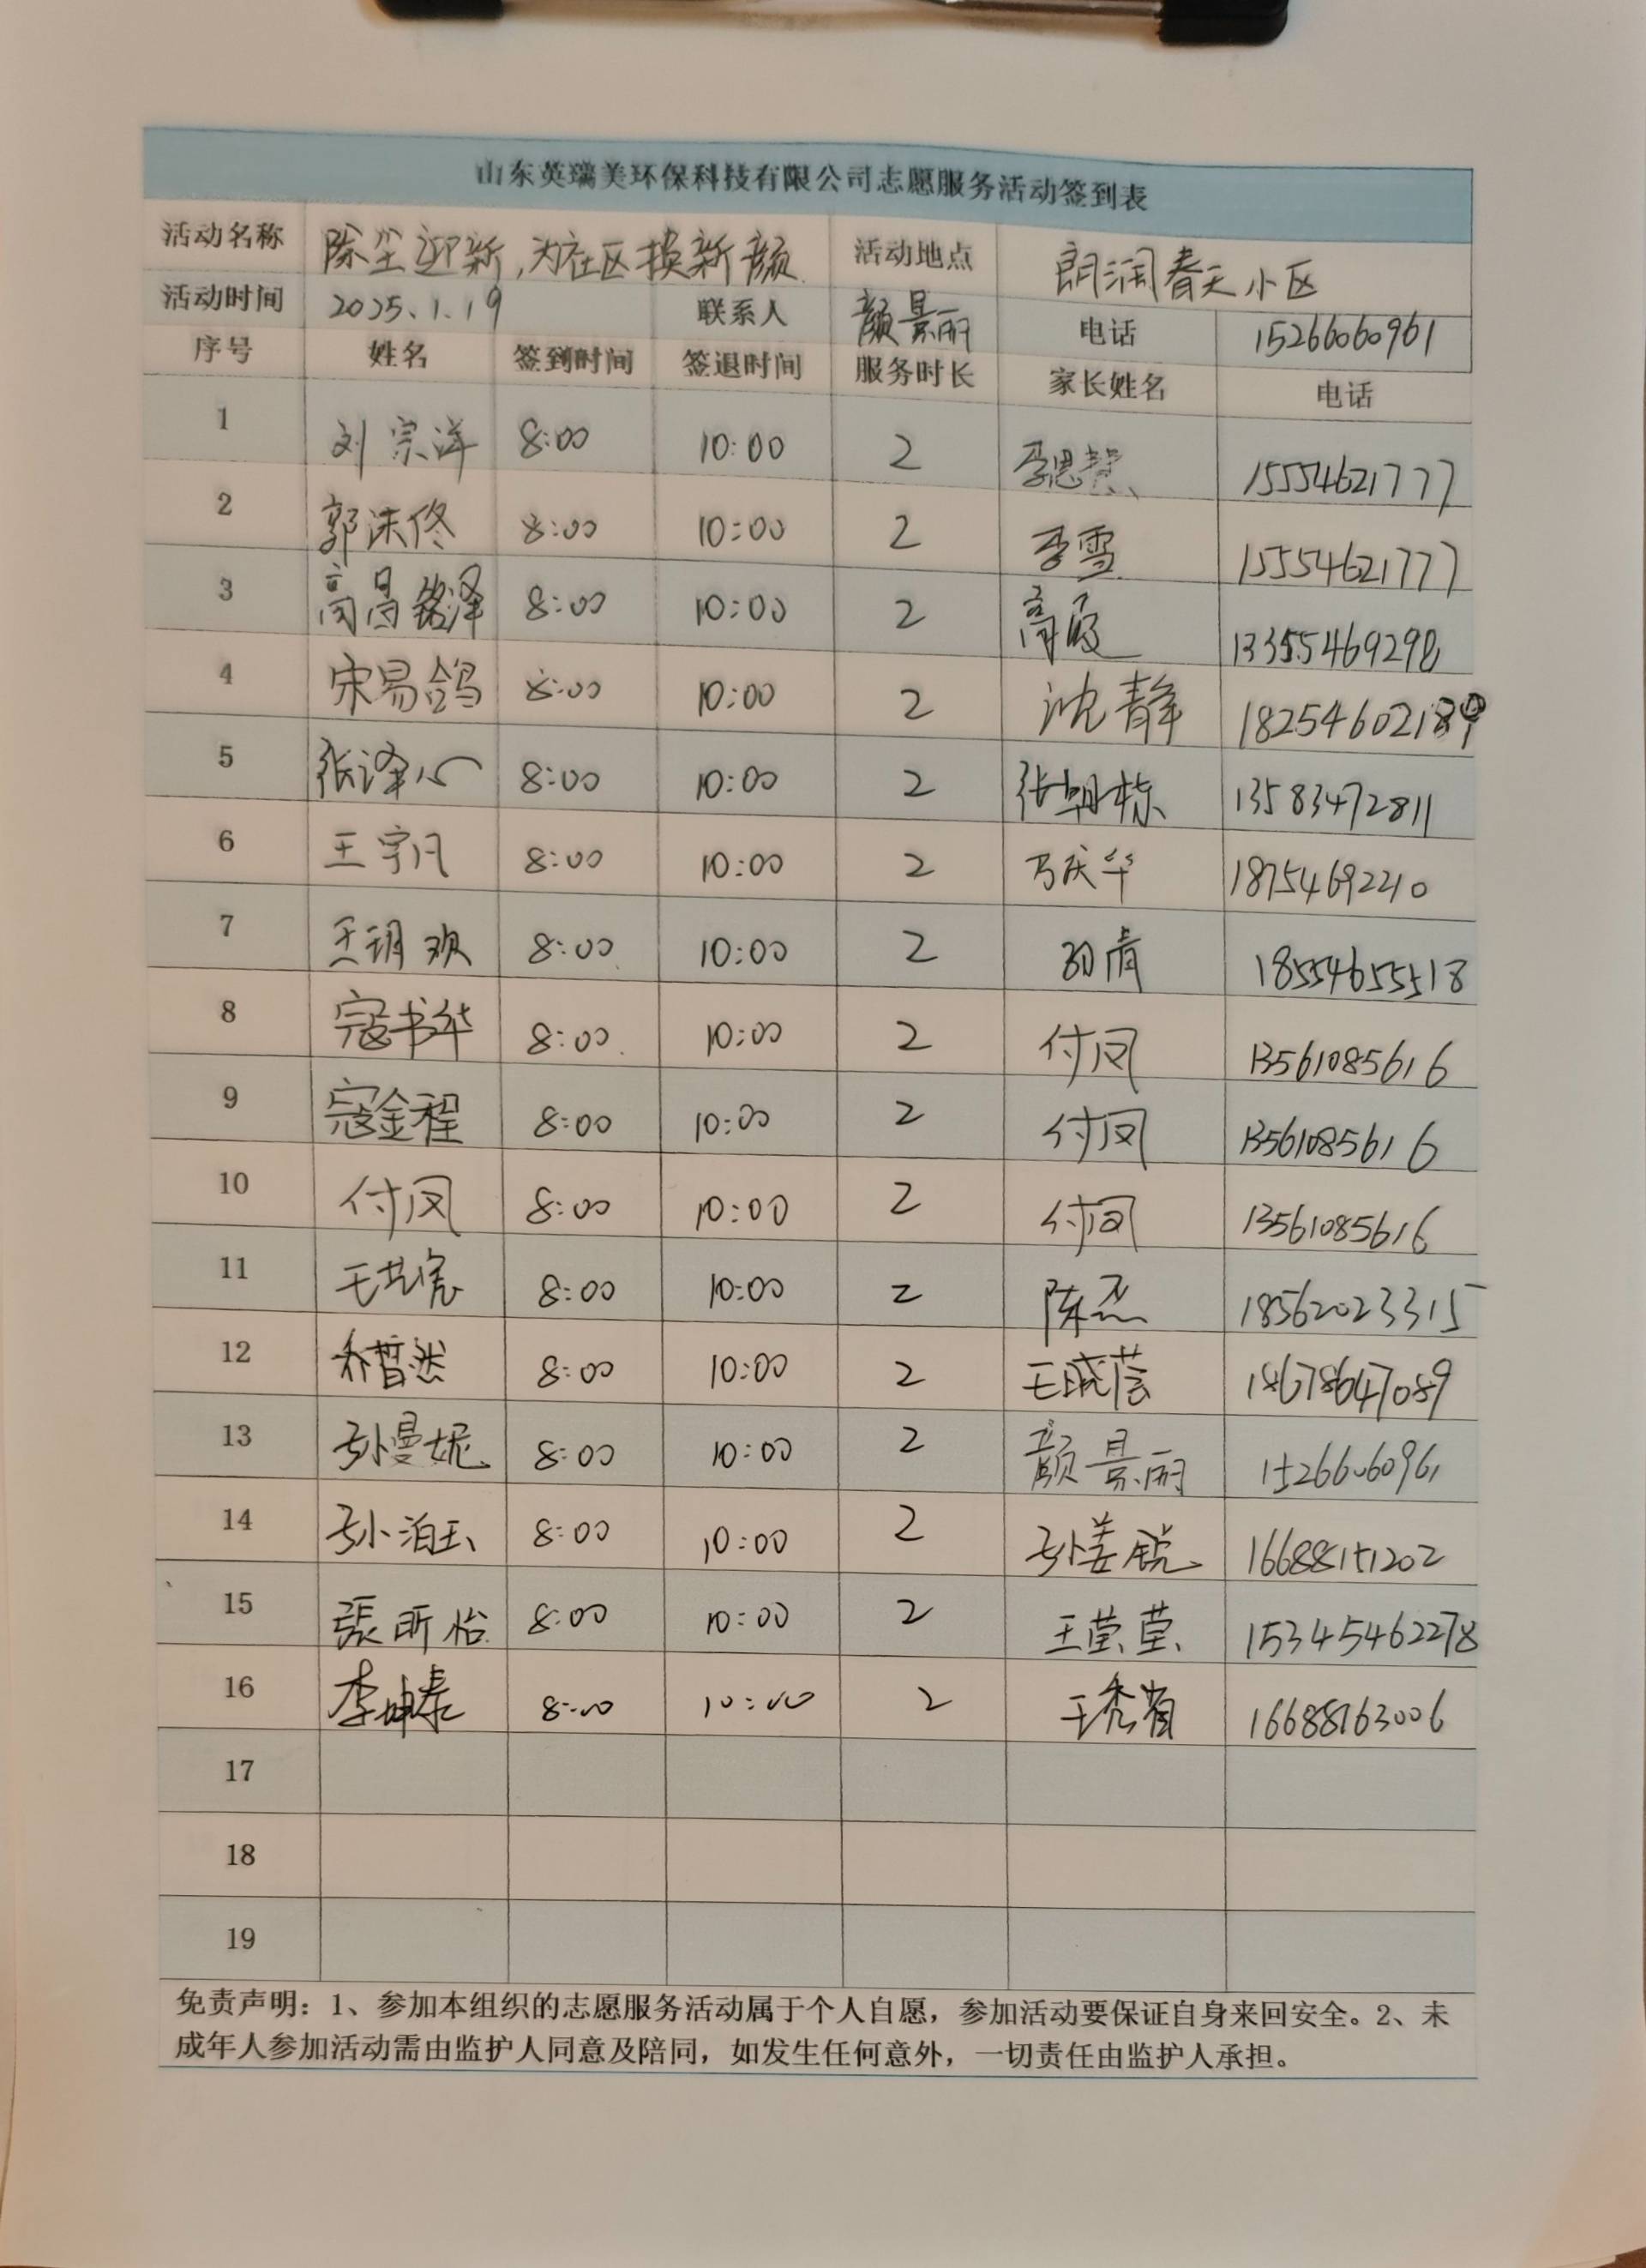 山东英瑞美环保科技有限公司志愿服务活动签到表
活动名称 除尘迎新,为社区换新颜 活动地点 朗润春天小区
活动时间 2025.1.19 联系人 颜景丽 电话 15266060961
序号 姓名 签到时间 签退时间 服务时长 家长姓名 电话
1 刘宗洋 8:00 10:00 2 李思慧 15554621777
2 郭沫佟 8:00 10:00 2 李雪 15554621777
3 高昌铭泽 8:00 10:00 2 高霞 13355469298
4 宋易鸽 8:00 10:00 2 沈静 18254602189
5 张泽心 8:00 10:00 2 张朝栋 13583472811
6 王宇凡 8:00 10:00 2 万庆华 18754692210
7 王玥欢 8:00 10:00 2 18554655518
8 寇书华 8:00 10:00 2 付凤 13561085616
9 寇金程 8:00 10:00 2 付凤 13561085616
10 付凤 8:00 10:00 2 付凤 13561085616
11 王艺宸 8:00 10:00 2 陈杰 18562023315
12 乔晢然 8:00 10:00 2 王晓蓉 18678647089
13 孙曼妮 8:00 10:00 2 颜景丽 15266060961
14 孙泊玉 8:00 10:00 2 孙姜锐 16688151202
15 張昕怡 8:00 10:00 2 王莹莹 15345462278
16 李坤泰 8:00 10:00 2 王秀省 16688163006
17
18
19
免责声明：1、参加本组织的志愿服务活动属于个人自愿，参加活动要保证自身来回安全。2、未
成年人参加活动需由监护人同意及陪同，如发生任何意外，一切责任由监护人承担。